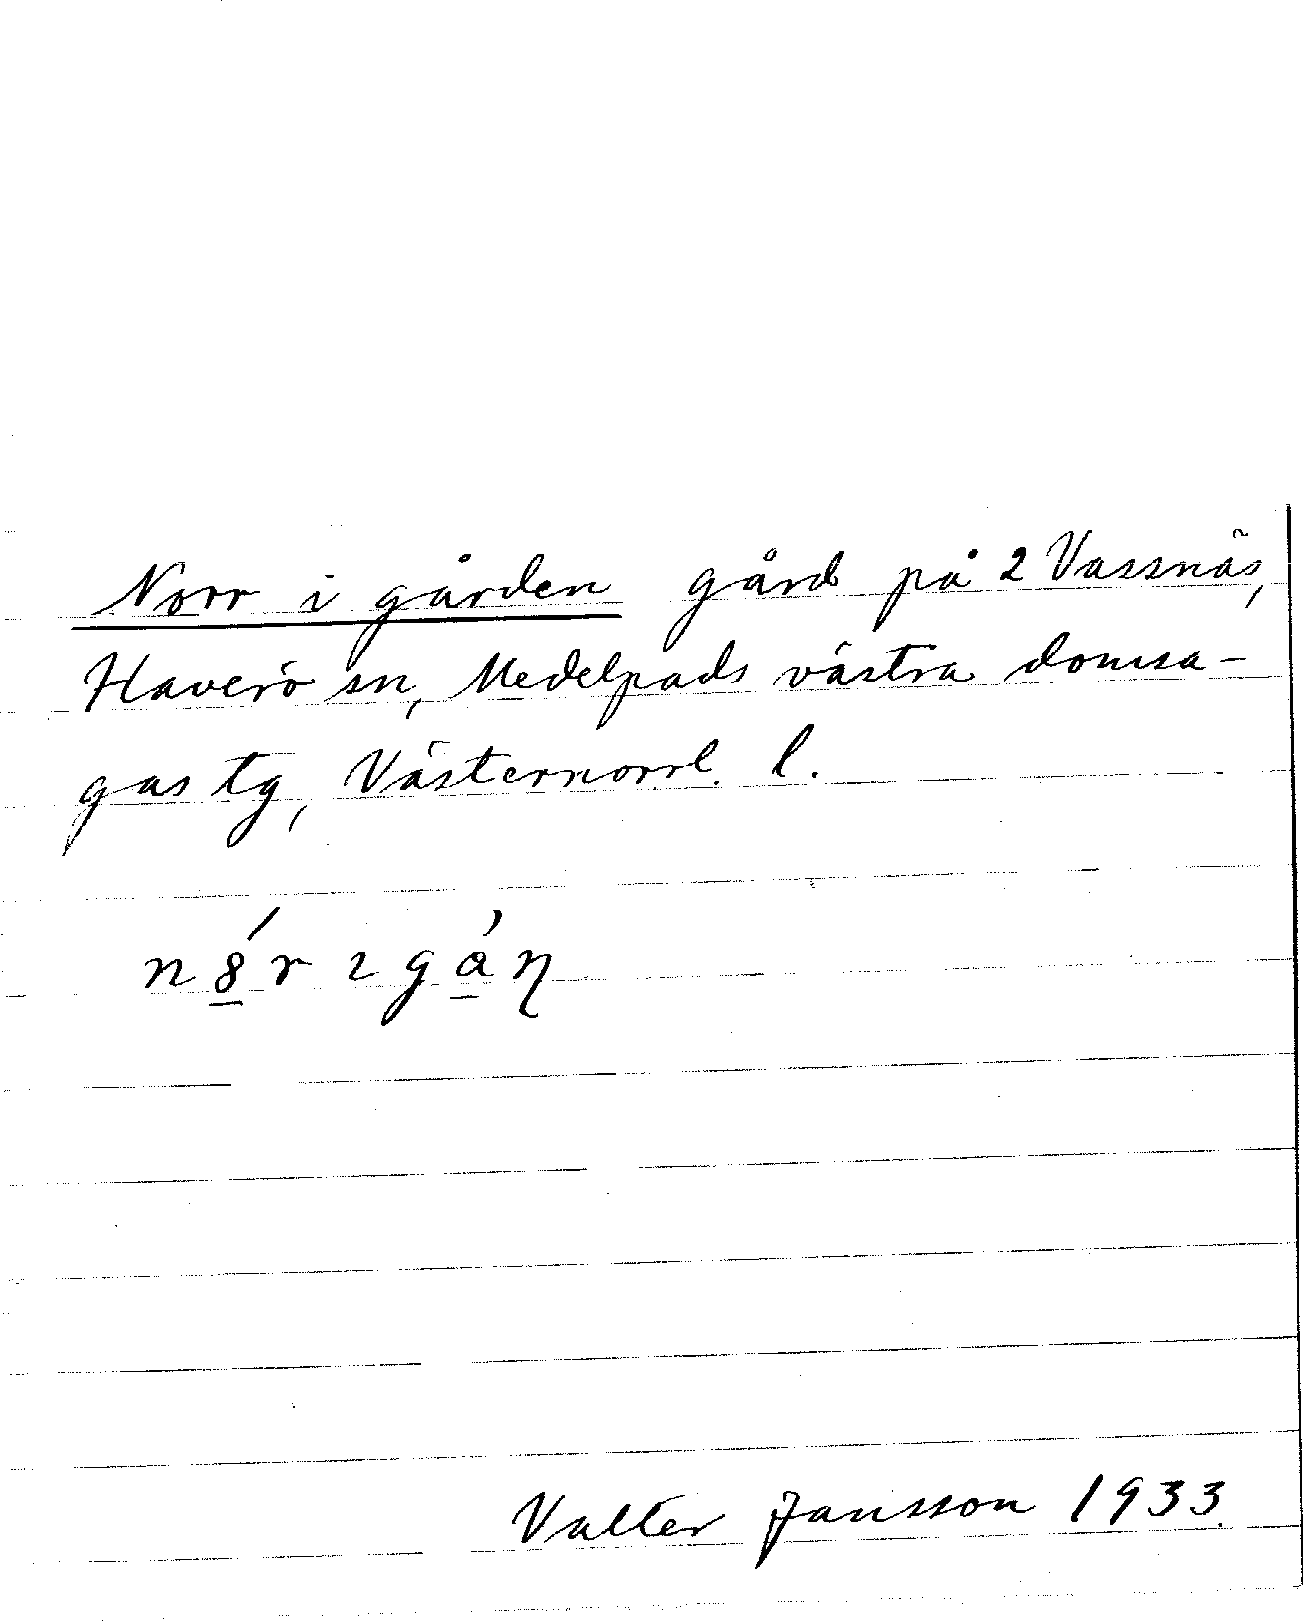 Norr i gården gård på 2 Vassnäs,
Haverö sn, Medelpads västra domsa-
gas tg, Västernorrl. l.
n8́r ıgán̡
Valter Jansson 1933.